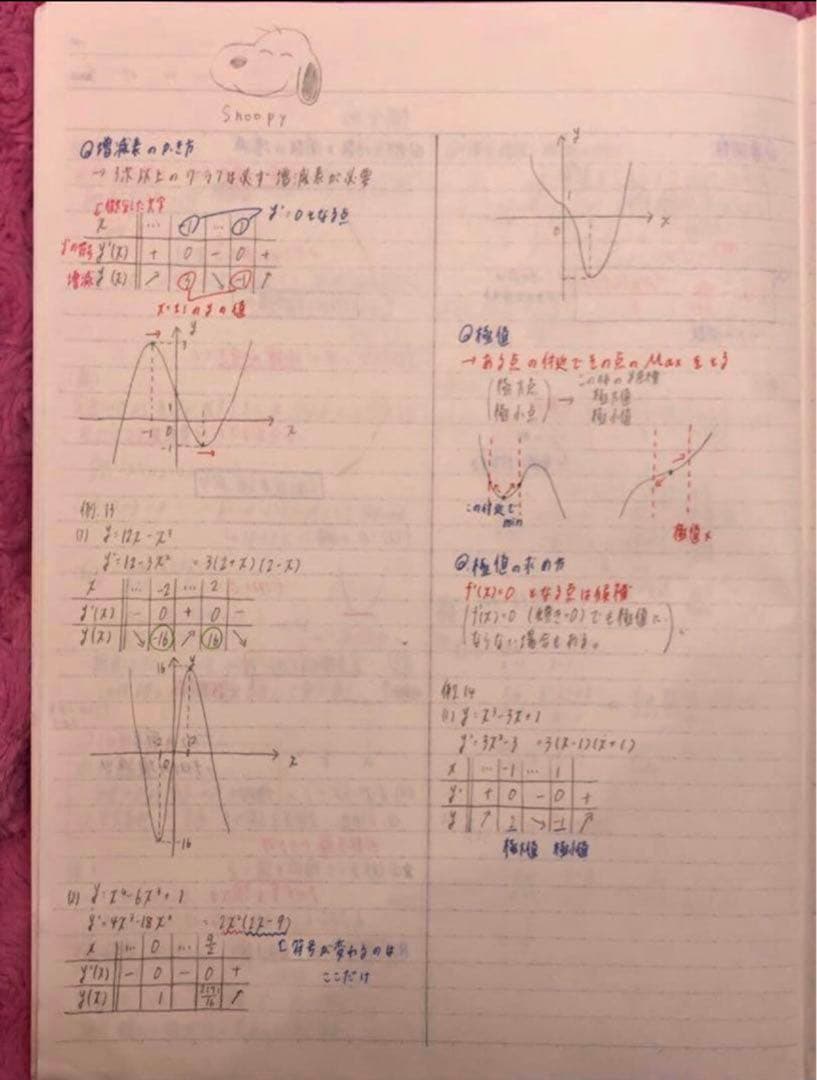 Snoopy
増減表のかき方
→3次以上のグラフは必ず増減表が必要
x … … y'=0となる点
y'の符号 y'(x) + 0 - 0 +
増減 y(x) ↗ 3 ↘ -1 ↗
x=±1のyの値
y
3
1
-1 0 x
-1
例.13
(1) y=12x-x³
y'=12-3x² =3(2+x)(2-x)
x … -2 … 2
y'(x) - 0 + 0 -
y(x) ↘ -16 ↗ 16 ↘
16 y
-2 0 2 x
-16
(2) y=x⁴-6x³+1
y'=4x³-18x² =2x²(2x-9)
x … 0 … 9/2
y'(x) - 0 - 0 +
y(x) 1 ↗
符号が変わるのは
ここだけ
y
1
0 x
極値
→ある点の付近でその点のMaxをとる
極大点
極小点
→
極大値
極小値
この付近で
min
極値x
極値の求め方
f'(x)=0となる点は候補
f'(x)=0 (傾き=0)でも極値に
ならない場合もある。
例.14
(1) y=x³-3x+1
y'=3x²-3 =3(x-1)(x+1)
x … -1 … 1
y' + 0 - 0 +
y ↗ ↘ ↗
極大値 極小値